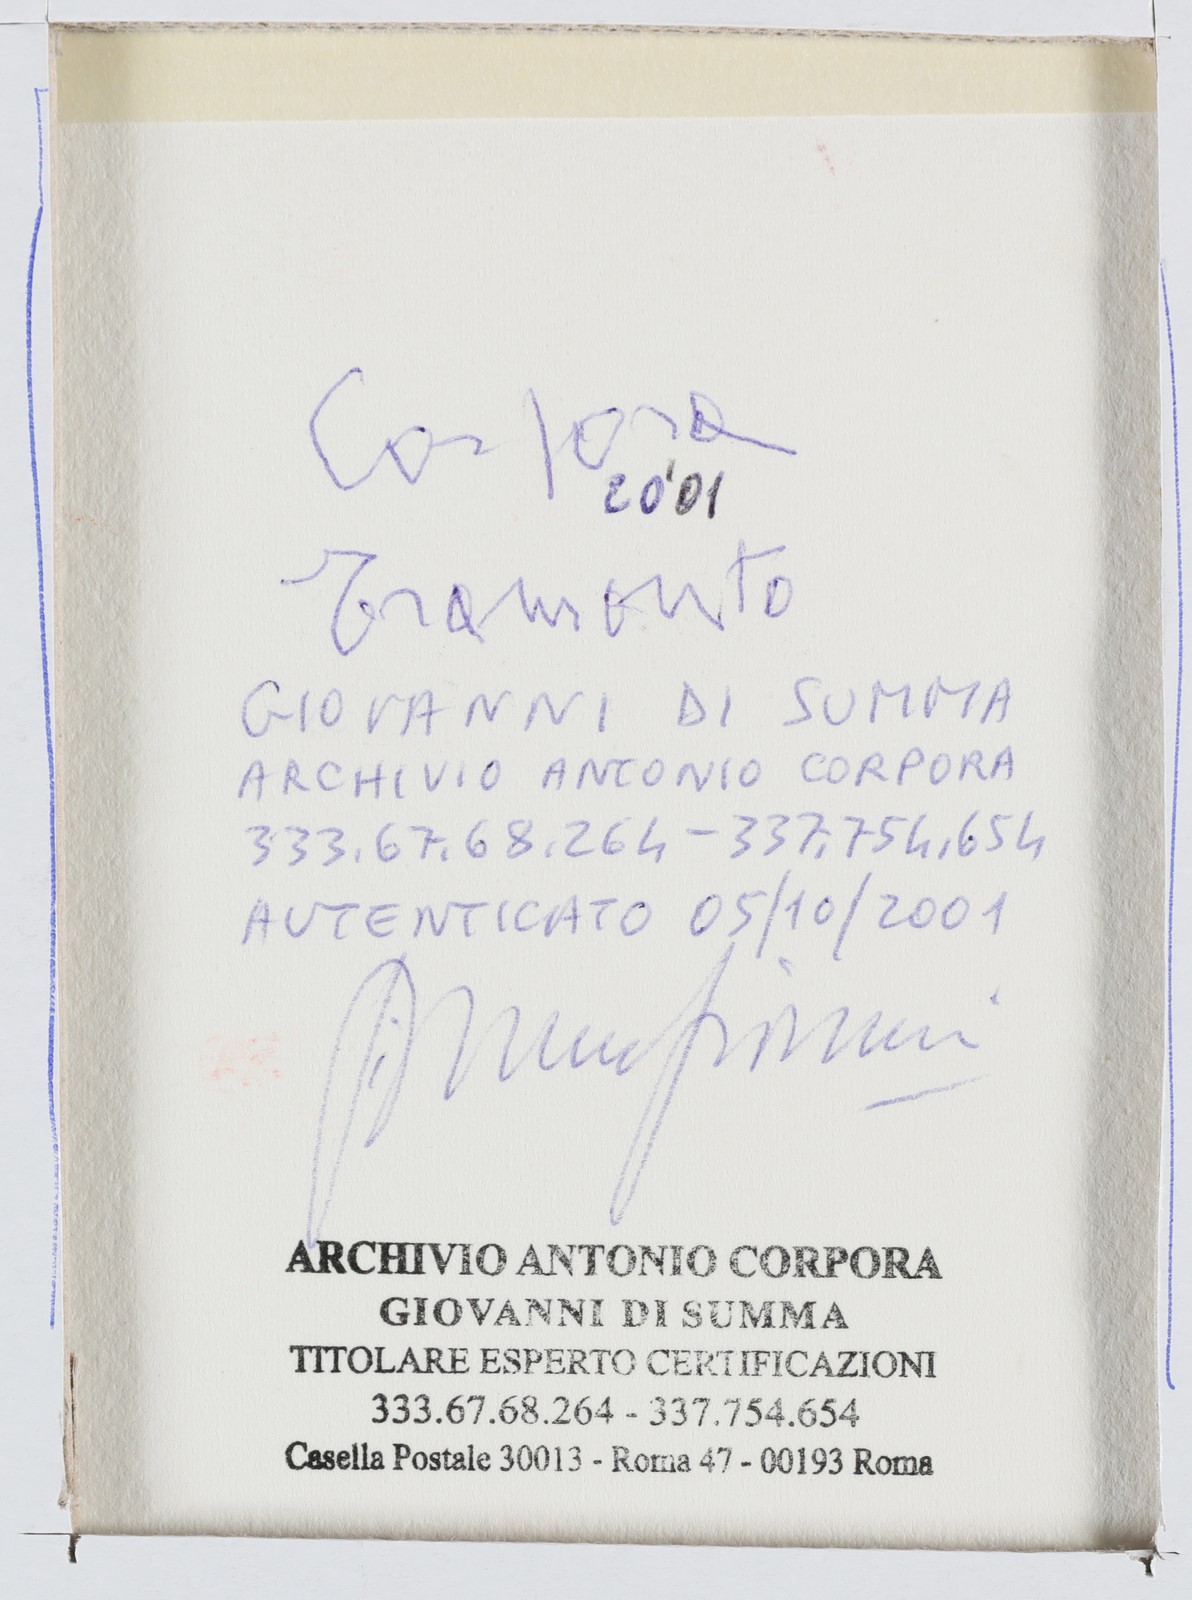 Corpora
20'01
Tramonto
GIOVANNI DI SUMMA
ARCHIVIO ANTONIO CORPORA
333.67.68.264 - 337.754.654
AUTENTICATO 05/10/2001
ARCHIVIO ANTONIO CORPORA
GIOVANNI DI SUMMA
TITOLARE ESPERTO CERTIFICAZIONI
333.67.68.264 - 337.754.654
Casella Postale 30013 - Roma 47 - 00193 Roma